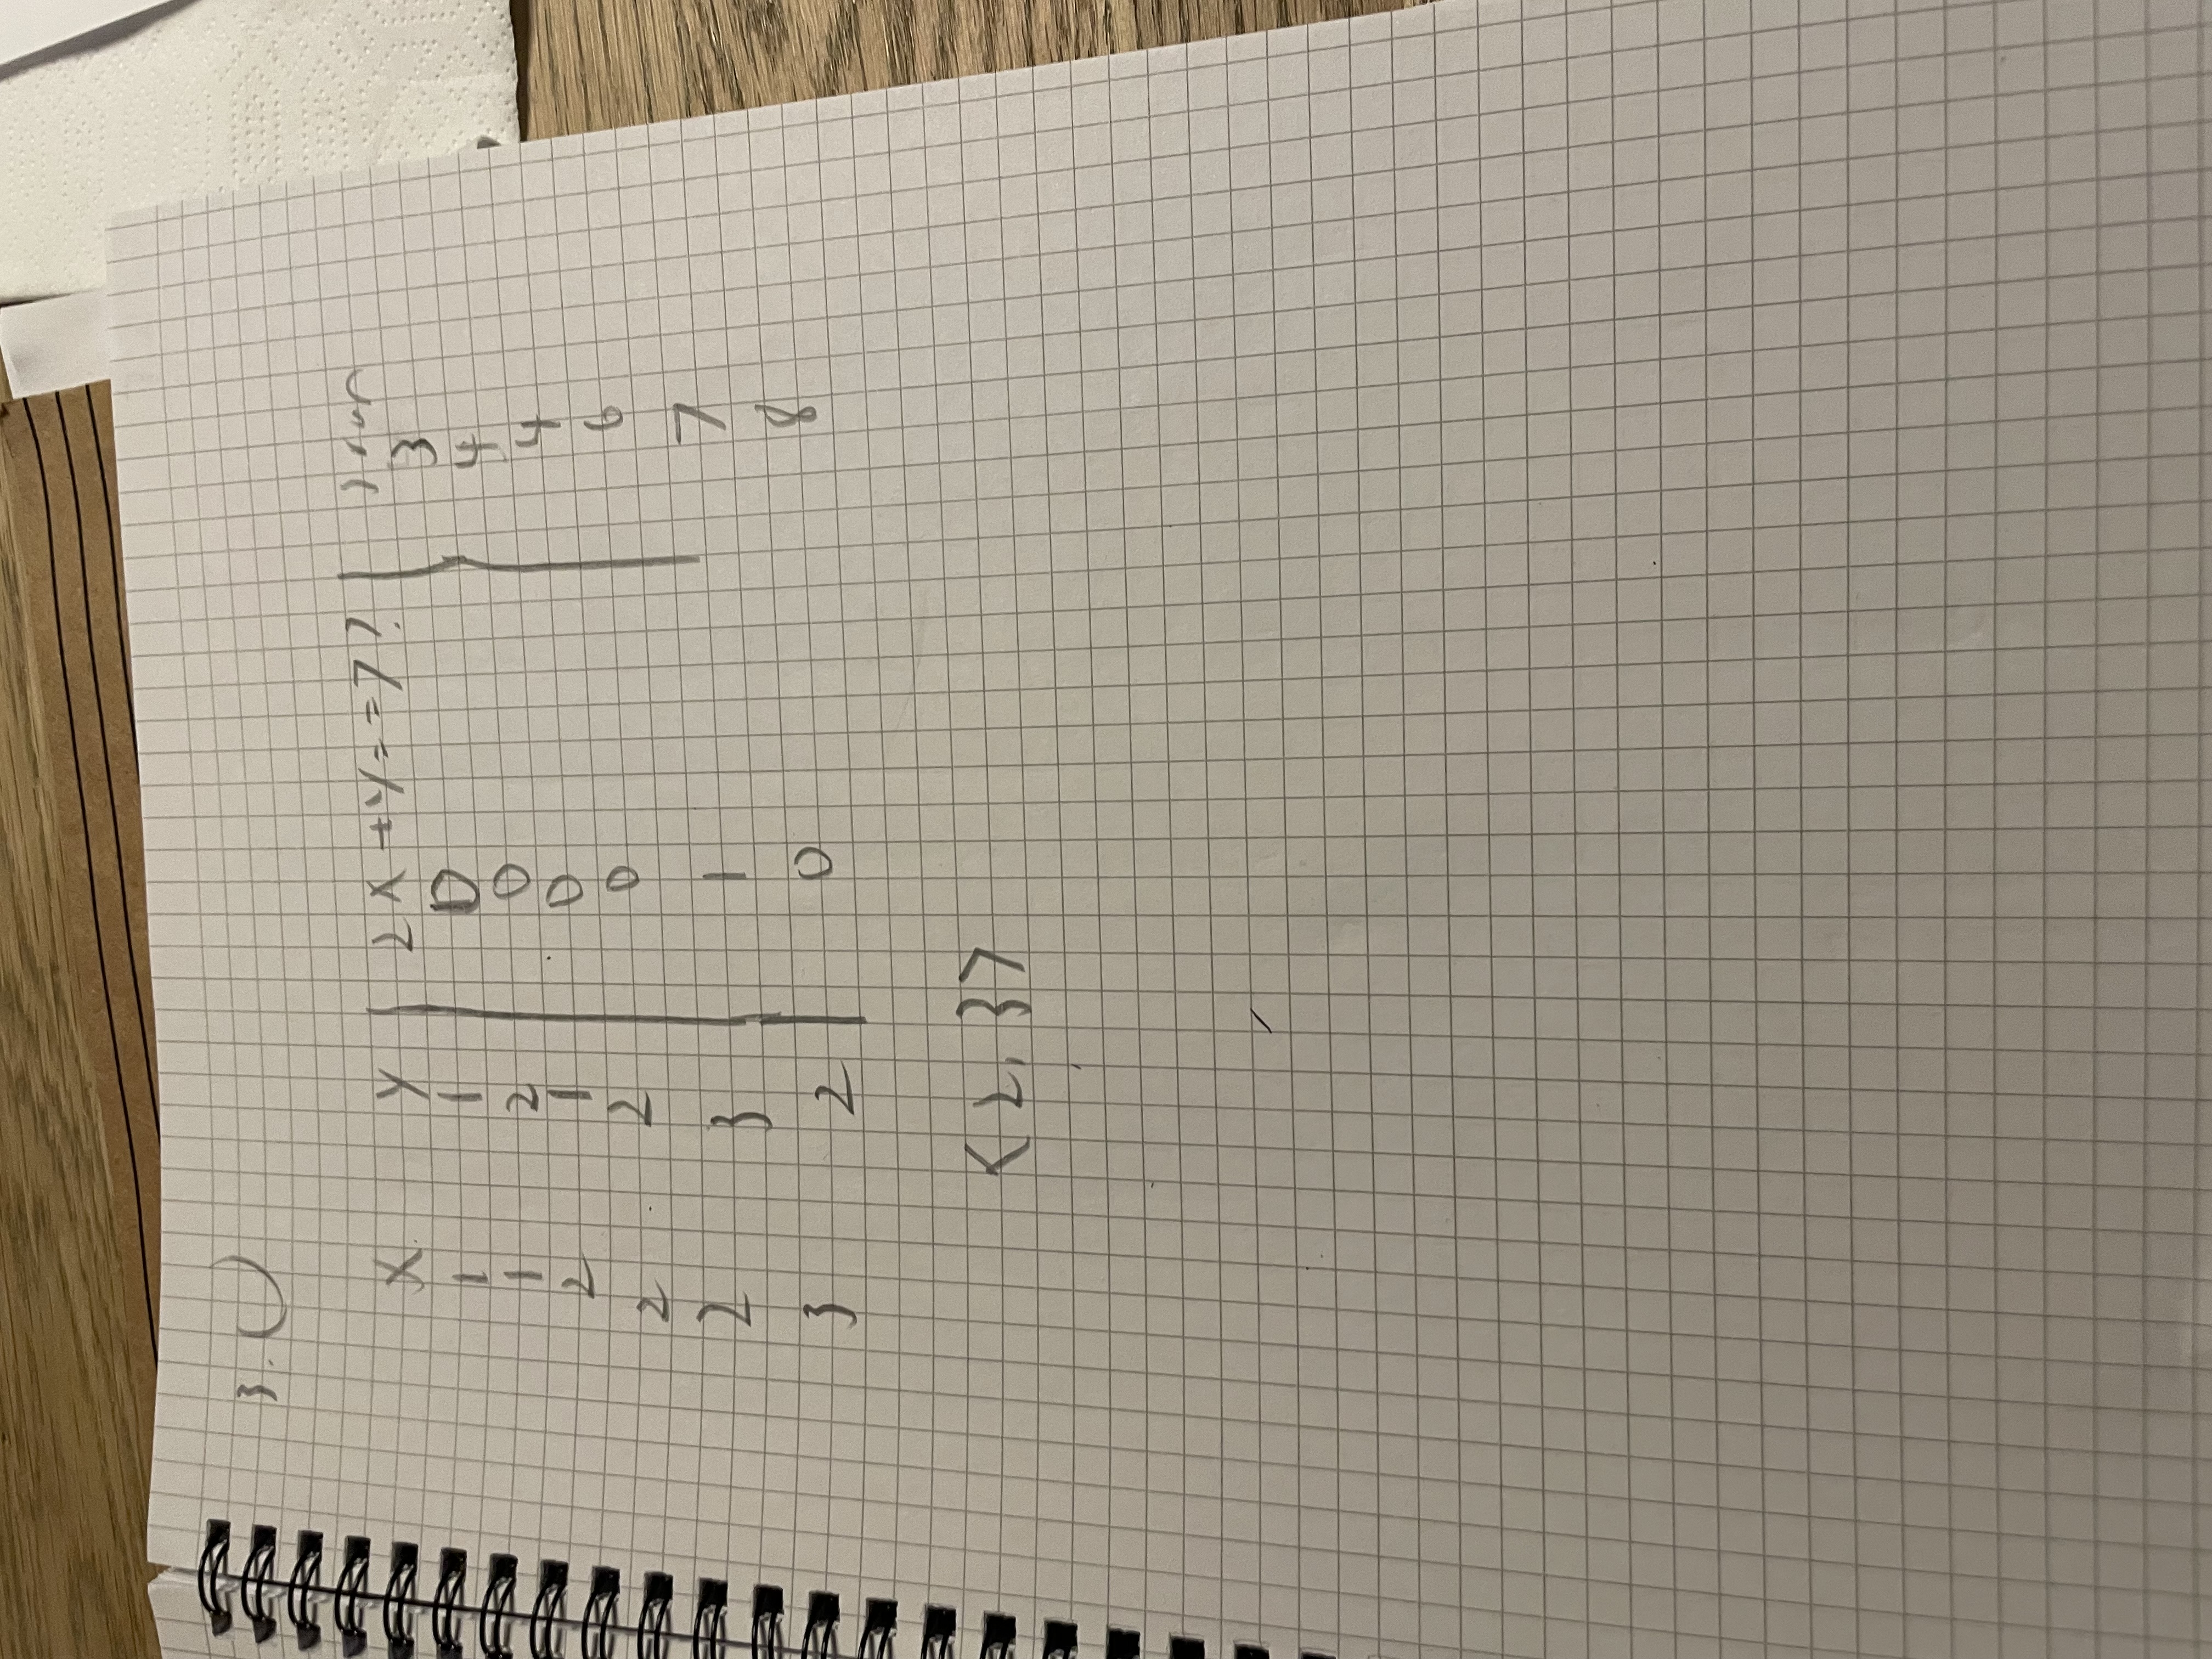 3.
X Y 2X+Y==7?
1 1 0 3
1 2 0 4
2 1 0 4
2 2 0 6
2 3 1 7
3 2 0 8
<2,3>